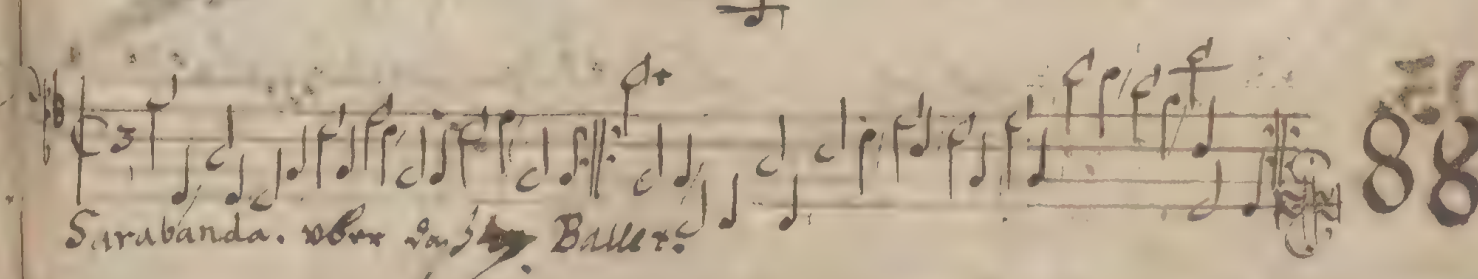 3
88
Sarabanda. vber das Ballet.